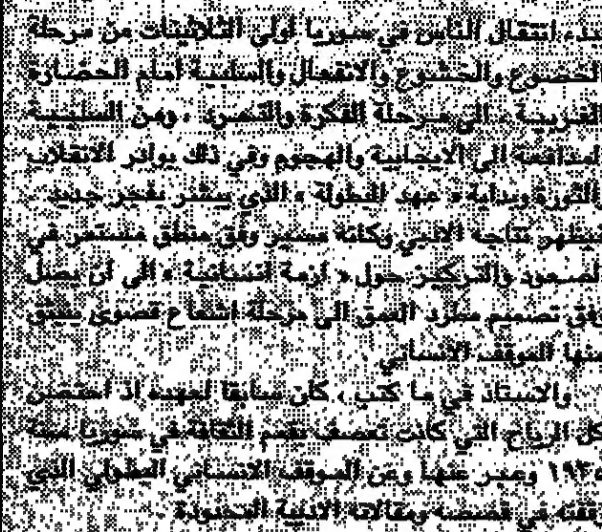 بدء انتقال الناس في سوريا اولي الثلاثينات من مرحلة
الخضوع والخشوع والانفعال والسلبية امام الحضارة
الغربية ، الى مرحلة الفكرة والتمرد ، ومن السلبية
المدافعة الى الايجابية والهجوم وفي ذلك بوادر الانقلاب
والثورة وبداية « عهد البطولة » الذي يبشر بفجر جديد .
فيظهر نتاجه الادبي وكانه يسير وفق منطق مستمر في
الصعود والتركيز حول « ازمة انسانية » الى ان يصل
وفق تصميم مطرد العمق الى مرحلة اشعاع قصوى ينبثق
منها الموقف الانساني .
والاستاذ في ما كتب ، كان سابقا لعهده اذ احتضن
كل الرياح التي كانت تعصف بقمم الثقافة في سوريا سنة
١٩٣٥ وعبر عنها وعن الموقف الانساني البطولي الذي
تقفه في قصصه ومقالاته الادبية المحدودة .